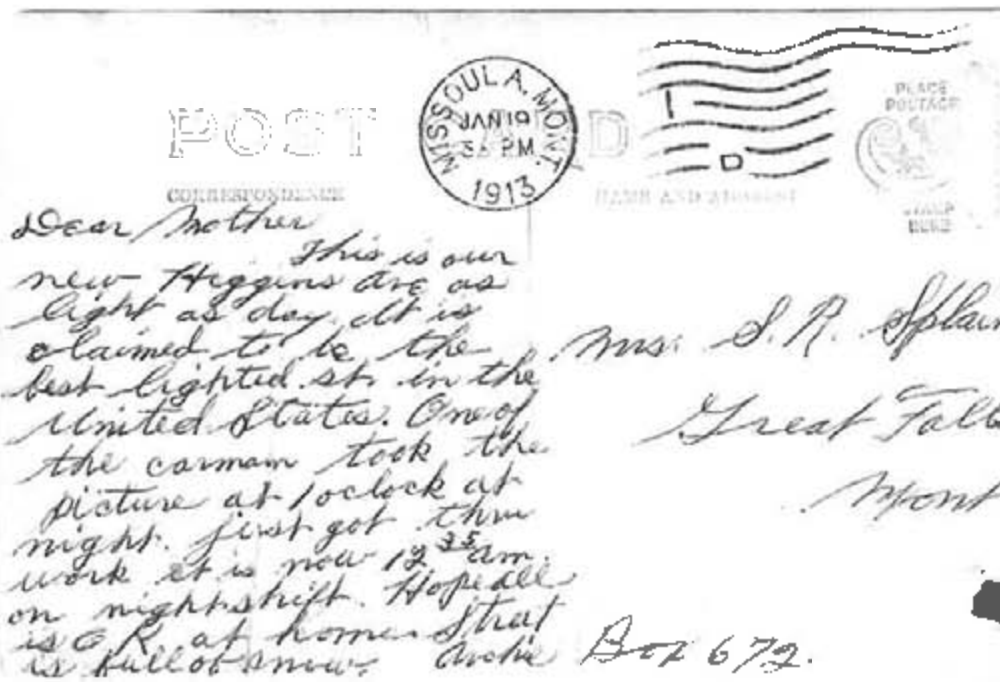 POST CARD
MISSOULA, MONT.
JAN 19
PM
1913
PLACE
POSTAGE
STAMP
HERE
CORRESPONDENCE
NAME AND ADDRESS
Dear Mother
This is our
new Higgins Ave as
light as day. It is
claimed to be the
best lighted st. in the
United States. One of
the carmam took the
picture at 1 oclock at
night. just got thru
work it is now 12 35 am.
on nightshift. Hope all
is O.K. at home. Strat
is full of snow. Archie
Mrs. S. A. Splain
Great Falls
Mont
Box 672.